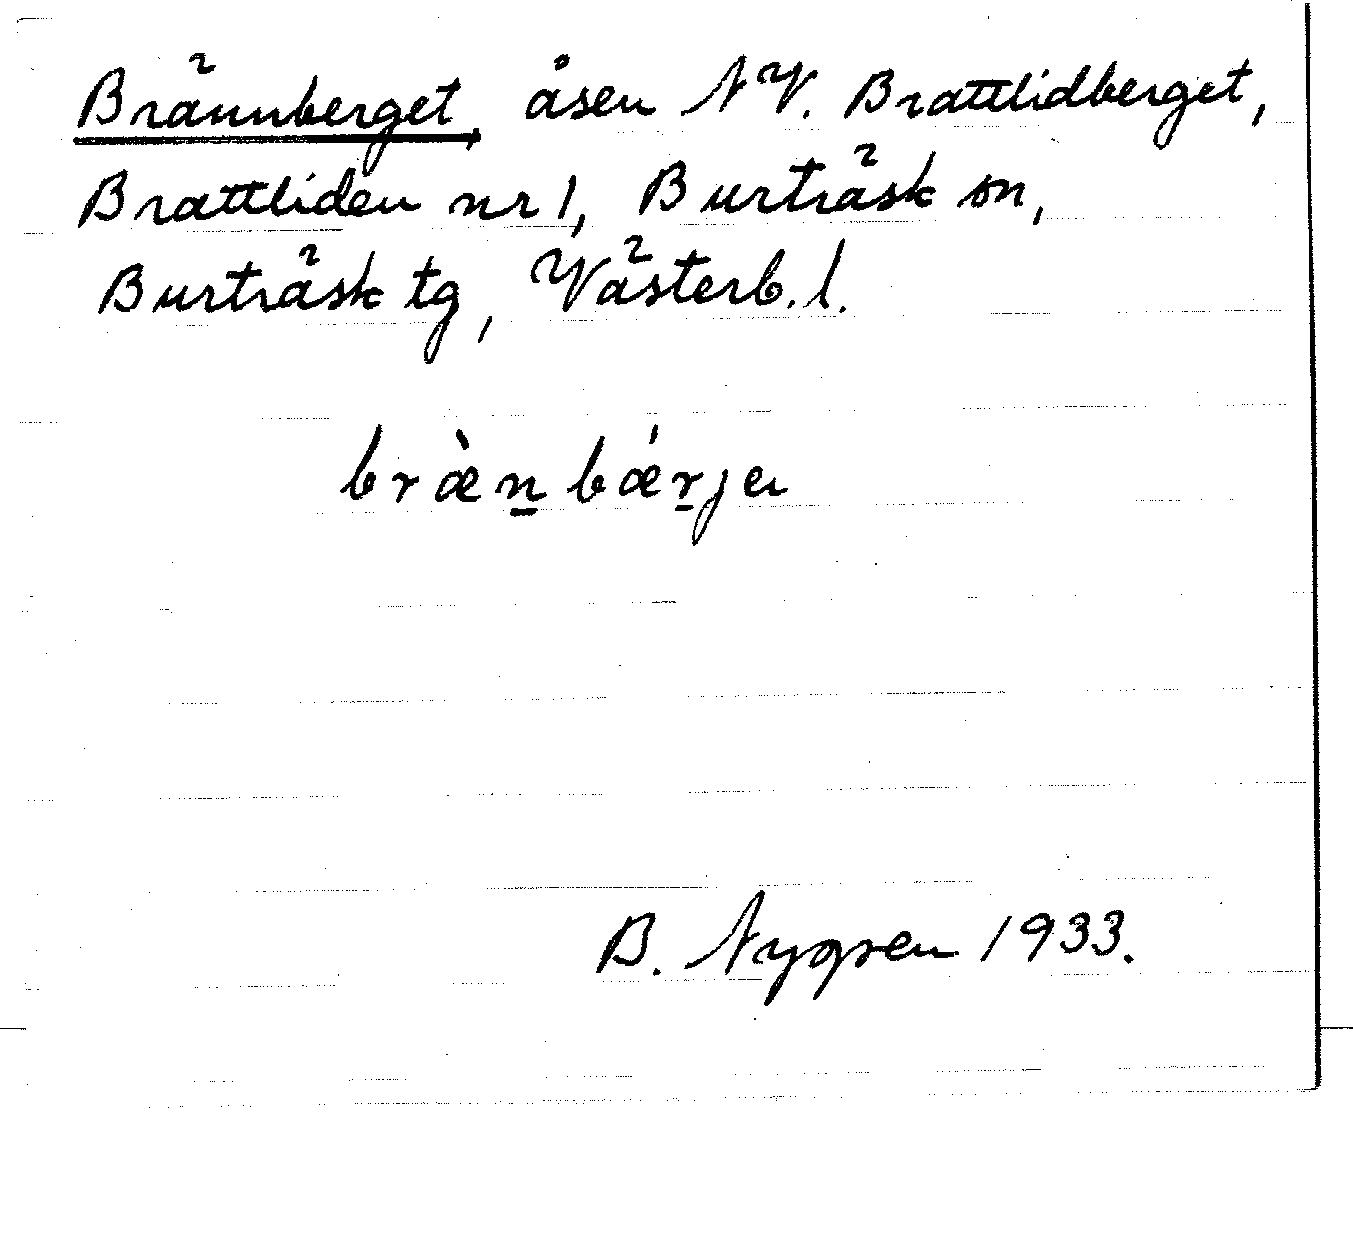 Brännberget, åsen NV. Brattlidberget,
Brattliden nr 1, Burträsk sn,
Burträsk tg, Västerb. l.
bræ̀n̲bǽr̲ja
B. Nygren 1933.